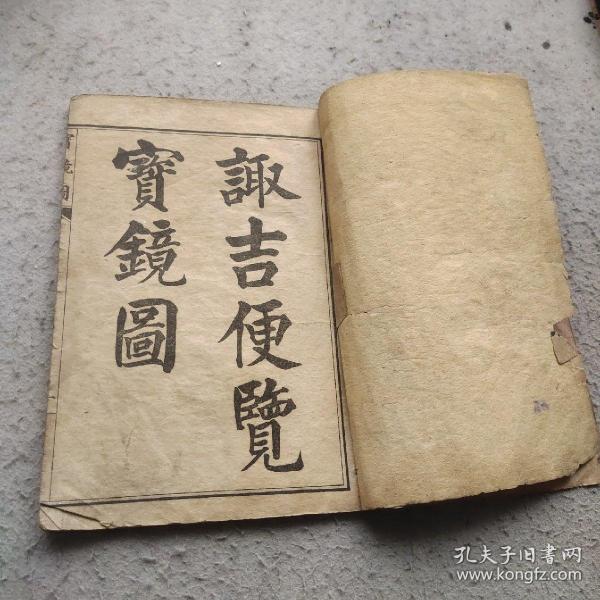 諏吉便覽
寶鏡圖
寶鏡圖
孔夫子旧書网
www.kongfz.com